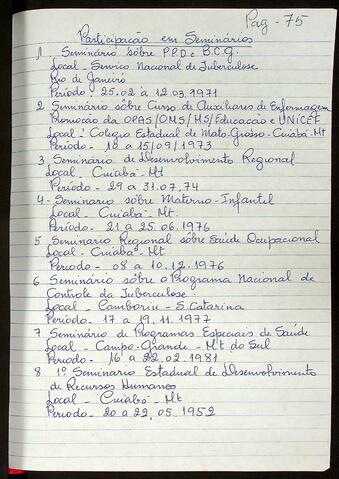 Pag - 75
Participação em Seminários
1. Seminário sôbre P.P.D e B.C.G.
Local - Serviço Nacional de Tuberculose
Rio de Janeiro
Período: 25.02 à 12.03.1971
2 Seminário sôbre Curso de Auxiliares de Enfermagem
Promoção da OPAS/OMS/MS/Educação e UNICEF
Local: Colegio Estadual de Mato-Grosso - Cuiabá-Mt
Periodo - 10 a 15/09/1973
3 Seminário de Desenvolvimento Regional
Local - Cuiabá-Mt
Período - 29 a 31.07.74
4 - Seminario sôbre Materno-Infantil
Local - Cuiabá - Mt.
Período - 21 a 25.06.1976
5 Seminario Regional sôbre Saúde Ocupacional
Local - Cuiabá-Mt
Periodo - 08 a 10.12.1976
6 Seminário sôbre o Programa Nacional de
Controle da Tuberculose.
Local - Camboriu - S. Catarina
Período. 17 a 19.11.1977
7 Seminário de Programas Especiais de Saúde
Local - Campo-Grande - Mt do Sul
Periodo - 16 a 22.02.1981
8 1º Seminario Estadual de Desenvolvimento
de Recursos Humanos
Local - Cuiabá - Mt
Periodo - 20 a 22.05.1952